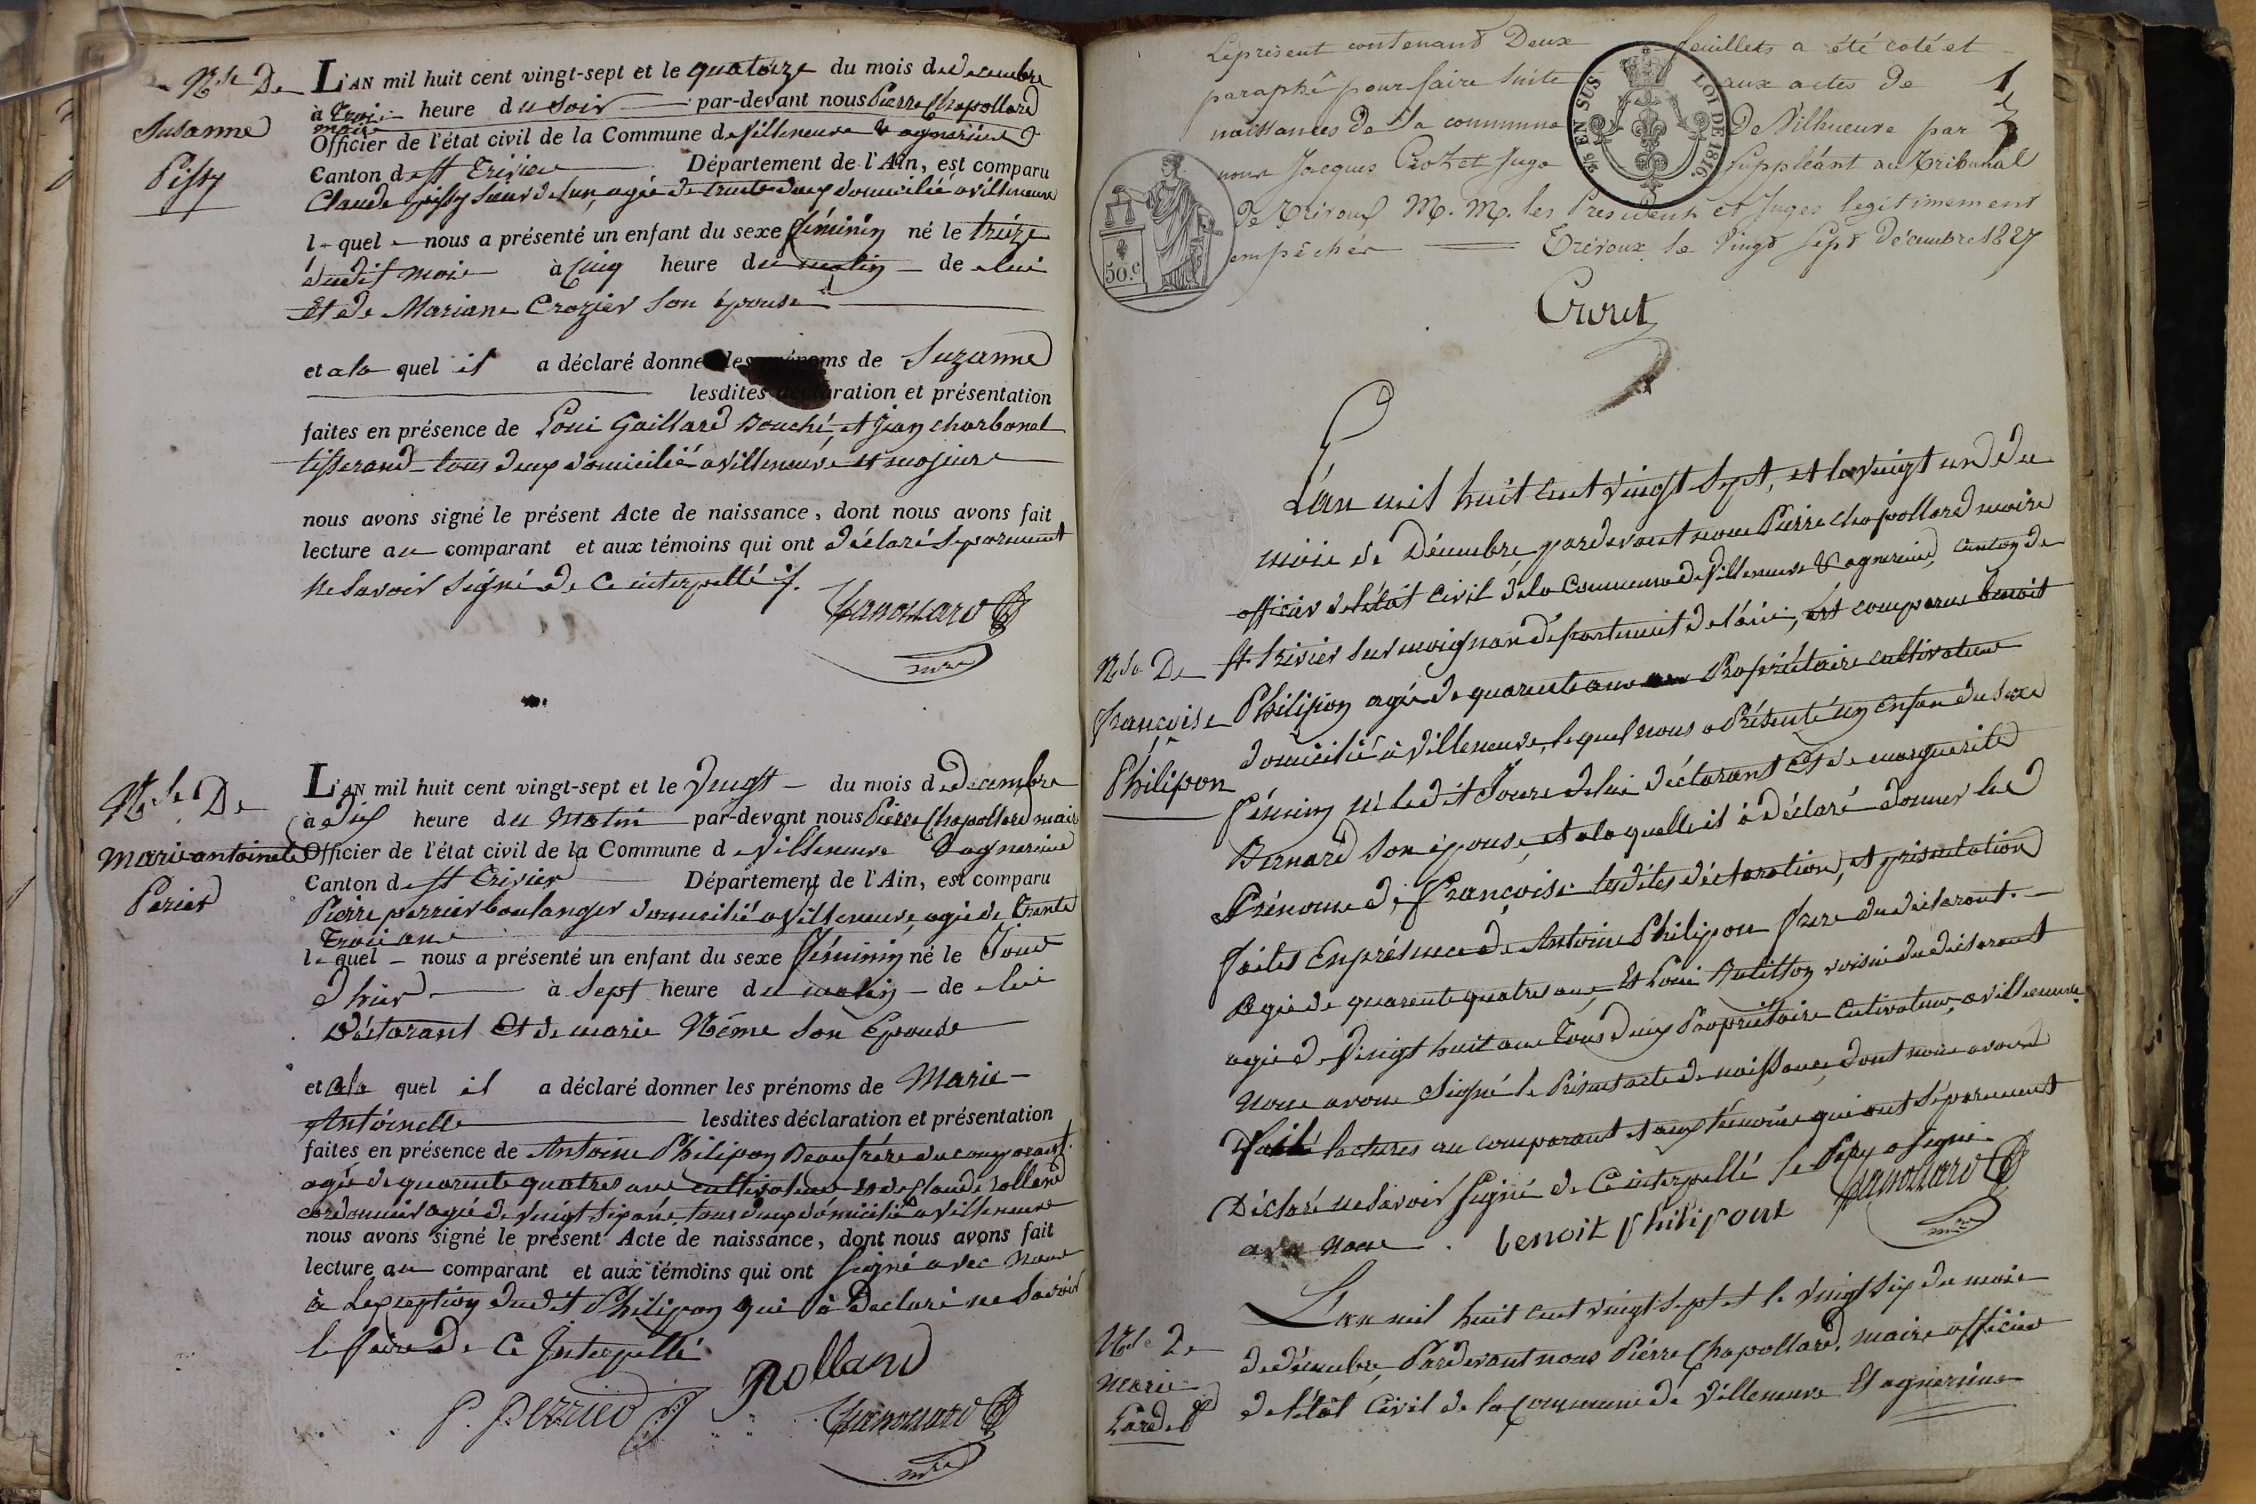 Nce De
Susanne
Pissy
L'AN mil huit cent vingt-sept et le quatorze du mois de décembre
à trois heure du soir par-devant nous Pierre Chapollard
maire
Officier de l'état civil de la Commune de Villeneuve & agnereins
Canton de St Trivier Département de l'Ain, est comparu
Claude pissy agée de trente deux domicilié a villeneuve
le quel nous a présenté un enfant du sexe féminin né le treize
dudit mois à Cinq heure du matin de lui
Et de Mariane Crozier son épouse
et a la quel il a déclaré donner les prénoms de Suzanne
lesdites déclaration et présentation
faites en présence de Loui Gaillard Bouché, et Jean charbonel
tisserand tous deux domicilié a villeneuve et majeurs
nous avons signé le présent Acte de naissance, dont nous avons fait
lecture au comparant et aux témoins qui ont déclaré séparément
ne savoir signé de ce interpellé
mre
Nce De
Marie antoinete
Perier
L'AN mil huit cent vingt-sept et le Vingt du mois de décembre
à dix heure du Matin par-devant nous Pierre Chapollard maire
Officier de l'état civil de la Commune de Villeneuve & agnereins
Canton de St Trivier Département de l'Ain, est comparu
Pierre perrier boulanger domicilié a Villeneuve, agée de trente
trois ans
le quel nous a présenté un enfant du sexe féminin né le Jour
d'hier à Sept heure du matin de lui
Déclarant Et de marie Néme son Epouse
et a la quel il a déclaré donner les prénoms de Marie
Antoinette lesdites déclaration et présentation
faites en présence de Antoine Philipon Beaufrére du comparant
agée de quarente quatres ans cultivateur Et de Claude rolland
cordonnier agée de vingt six ans, tous deux domicilié a Villeneuve
nous avons signé le présent Acte de naissance, dont nous avons fait
lecture au comparant et aux témoins qui ont signé avec nous
à Lexception dudit Philipon qui à Declaré ne savoir
le faire de Ce Interpellé
Rolland
P. Perrier
mre
Le présent contenant Deux feuillets a été coté et
paraphé pour faire suite aux actes de
naissances de la commune De Villneuve par
nous Jacques Crozet Juge suppléant au Tribunal
de Trévoux M. M. les Présidents et Juges légitimement
empêchés Trévoux le Vingt Sept Décembre 1827
25 EN SUS
LOI DE 1816.
50.c
1
2
Crozet
L'an mil huit cent vingt sept, et le vingt un du
mois de Décembre, pardevant nous Pierre chapollard maire
officier de l'état civil de la Commune de Villeneuve & agnereins, canton de
St trivier sur moignan département de l'ain, est comparue benoit
Nce De
françoise
Philipon
Philipon agée de quarente ans Propriétaire cultivateur
domicilié à Villeneuve, lequel nous a Présenté un enfan du sexe
féminin né ledit Jour de lui déclarant et de marguerite
Bernard son épouse, et a la quelle il à déclaré donner les
Prénoms de françoise lesdites déclaration, et présentation
faites en présence de Antoine Philipon frere du déclarant
agée de quarente quatres ans, Et Loui voisin du déclarant
agée de Vingt huit ans tous deux Propriétaire Cultivateur a villeneuve
nous avons signé le Présent acte de naissance, dont nous avons
fait lectures au comparant et aux témoins qui ont séparement
Déclaré ne savoir signé de Ce interpellé le Pere a signé
avec nous
benoit philipont
mre
Nce De
Marie
L'an mil huit cent vingt sept et le vingt six du mois
de décembre, Pardevant nous Piérre Chapollard, maire officier
de l'état Civil de la Commune de Villeneuve Et agnereins